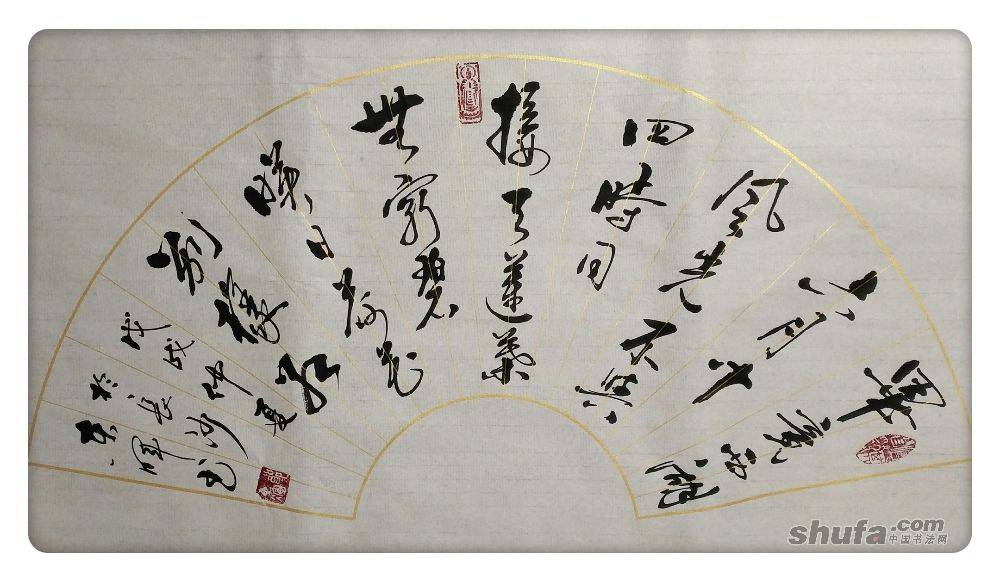 畢竟西湖
六月中
風光不與
四時同
接天蓮葉
無窮碧
映日荷花
別樣紅
戊戌仲夏
於長沙
书
shufa.com
中国书法网